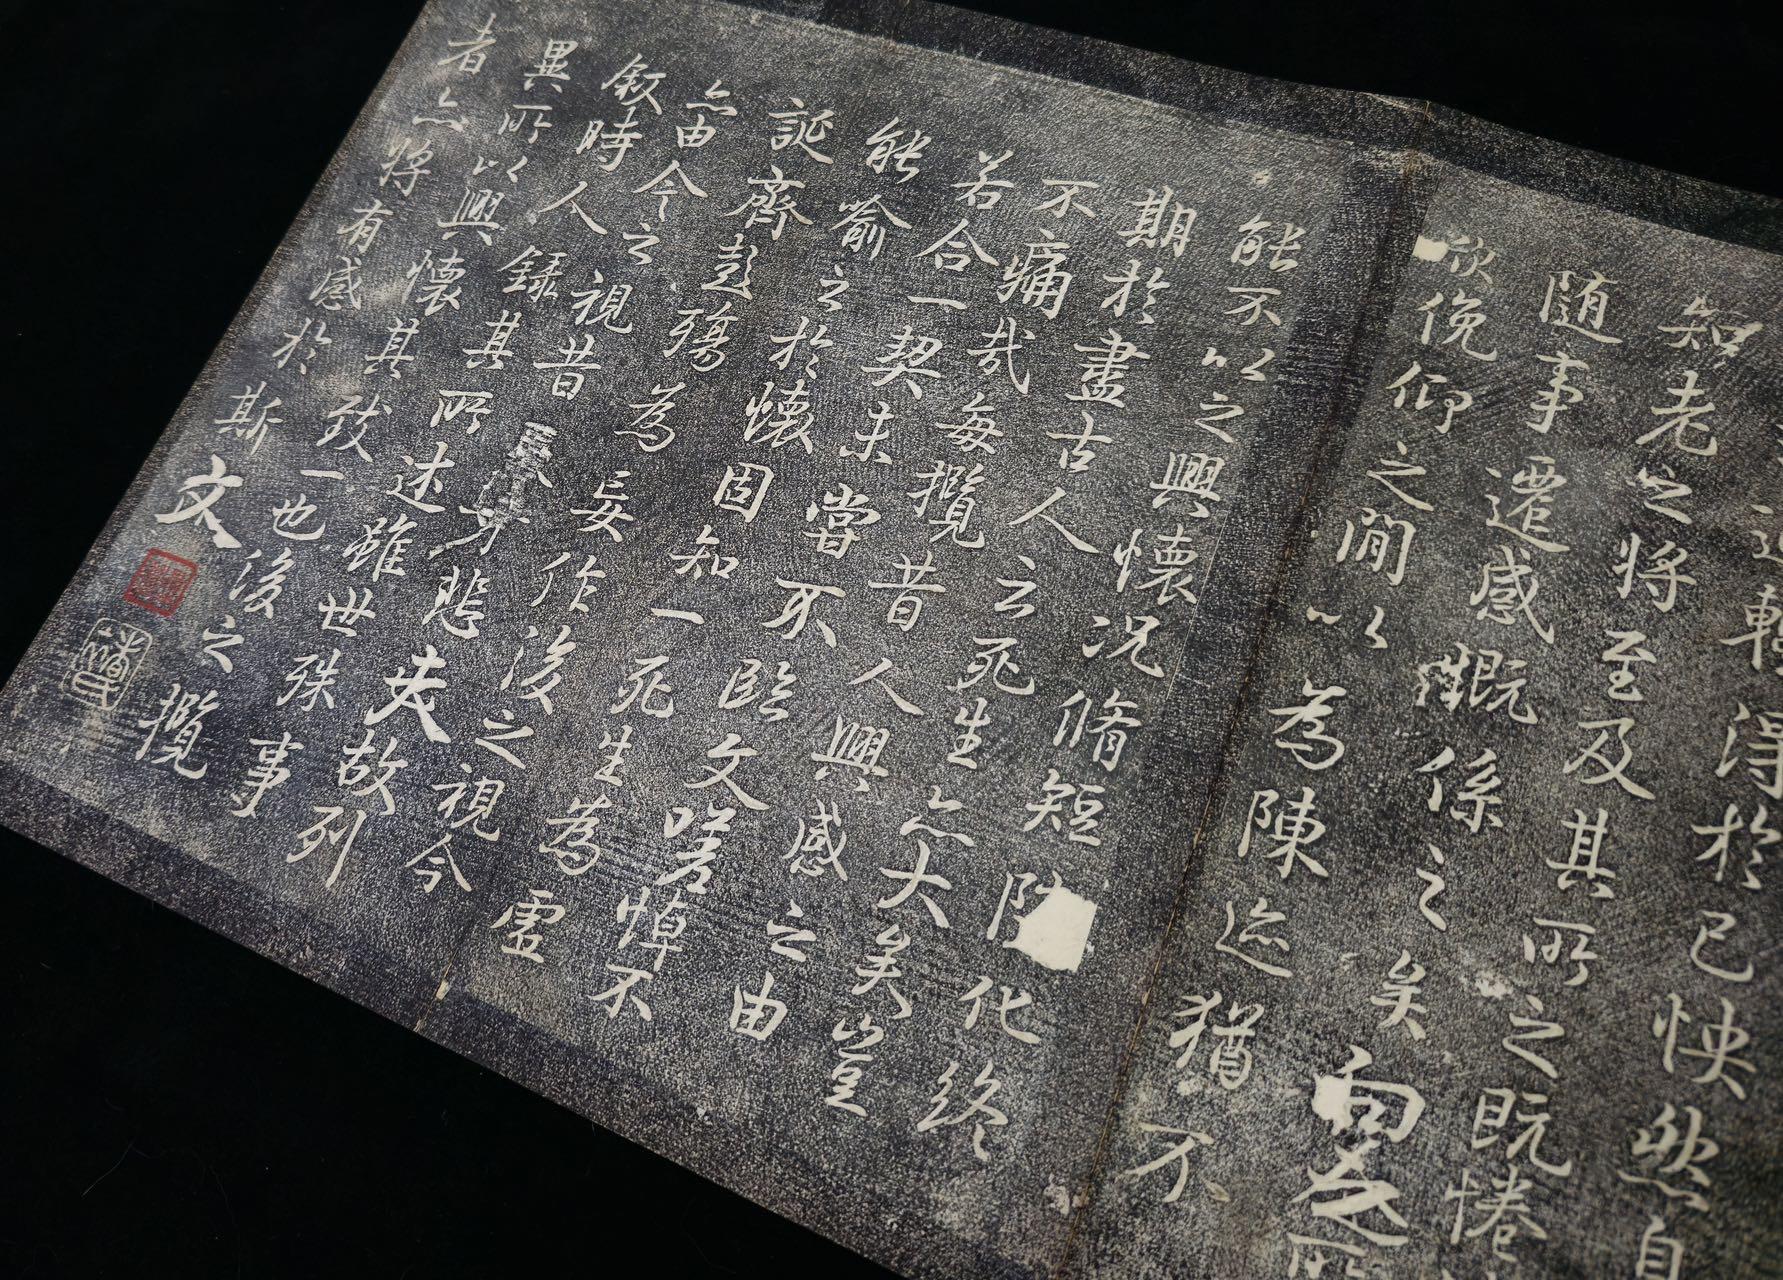 得於己怏然自
知老之將至及其所之既惓
隨事遷感慨係之矣向之所
欣俛仰之閒以為陳迹猶不
能不以之興懷況脩短
隨化終
期於盡古人云死生亦大矣豈
不痛哉每攬昔人興感之由
若合一契未嘗不臨文嗟悼不
能喻之於懷固知一死生為虛
誕齊彭殤為妄作後之視今
亦由今之視昔
悲夫故列
敘時人錄其所述雖世殊事
異所以興懷其致一也後之攬
者亦將有感於斯文